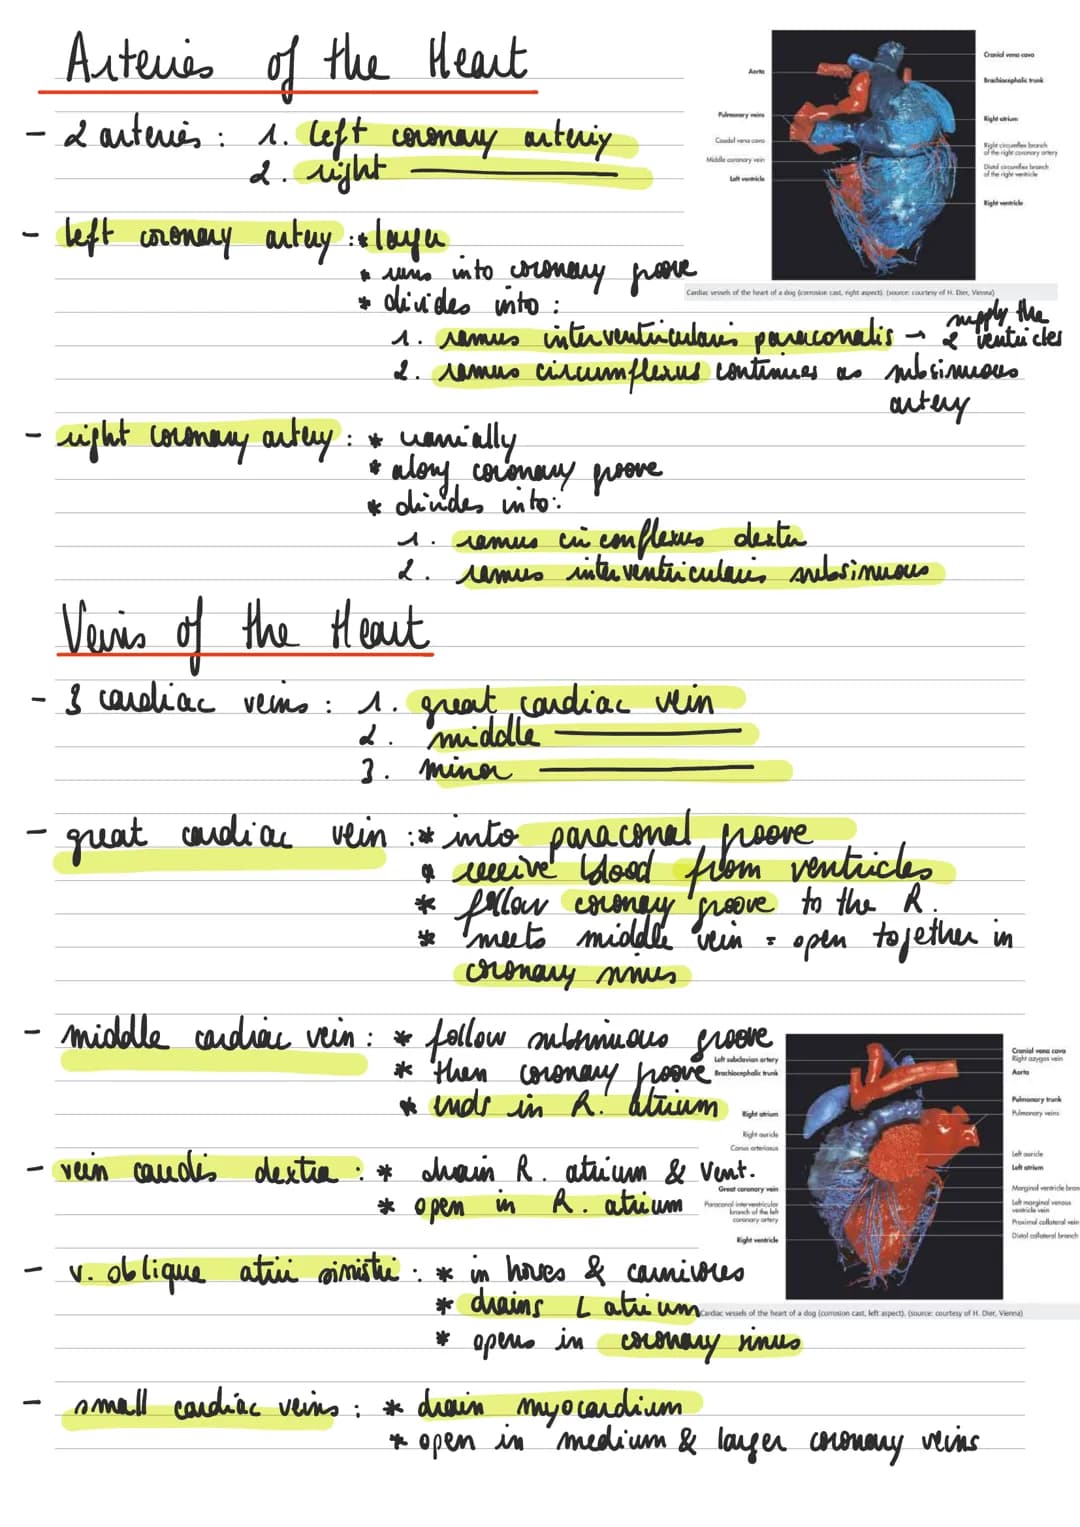 Arteries of the Heart
- 2 arteries : 1. left coronary arteriy
2. right
- left coronary artery : * larger
* runs into coronary groove
* divides into :
1. ramus interventricularis paraconalis → supply the 2 ventricles
2. ramus circumflexus continues as subsinuous artery
- right coronary artery : * cranially
* along coronary groove
* divides into :
1. ramus circonflexus dexter
2. ramus interventricularis subsinuous
Aorta
Pulmonary veins
Caudal vena cava
Middle coronary vein
Left ventricle
Cranial vena cava
Brachiocephalic trunk
Right atrium
Right circumflex branch
of the right coronary artery
Distal circumflex branch
of the right ventricle
Right ventricle
Cardiac vessels of the heart of a dog (corrosion cast, right aspect). (source: courtesy of H. Dier, Vienna)
Veins of the Heart
- 3 cardiac veins : 1. great cardiac vein
2. middle
3. minor
- great cardiac vein : * into paraconal groove
* receive blood from ventricles
* follow coronary groove to the R.
* meets middle vein = open together in
coronary sinus
- middle cardiac vein : * follow subsinuous groove
* then coronary groove
* ends in R. atrium
- vein caudis dextra : * drain R. atrium & Vent.
* open in R. atrium
- v. oblique atrii sinistri : * in horses & carnivores
* drains L atrium
* opens in coronary sinus
- small cardiac veins : * drain myocardium
* open in medium & larger coronary veins
Left subclavian artery
Brachiocephalic trunk
Right atrium
Right auricle
Conus arteriosus
Great coronary vein
Paraconal interventricular
branch of the left
coronary artery
Right ventricle
Cranial vena cava
Right azygos vein
Aorta
Pulmonary trunk
Pulmonary veins
Left auricle
Left atrium
Marginal ventricle bran
Left marginal venous
ventricle vein
Proximal collateral vein
Distal collateral branch
Cardiac vessels of the heart of a dog (corrosion cast, left aspect). (source: courtesy of H. Dier, Vienna)